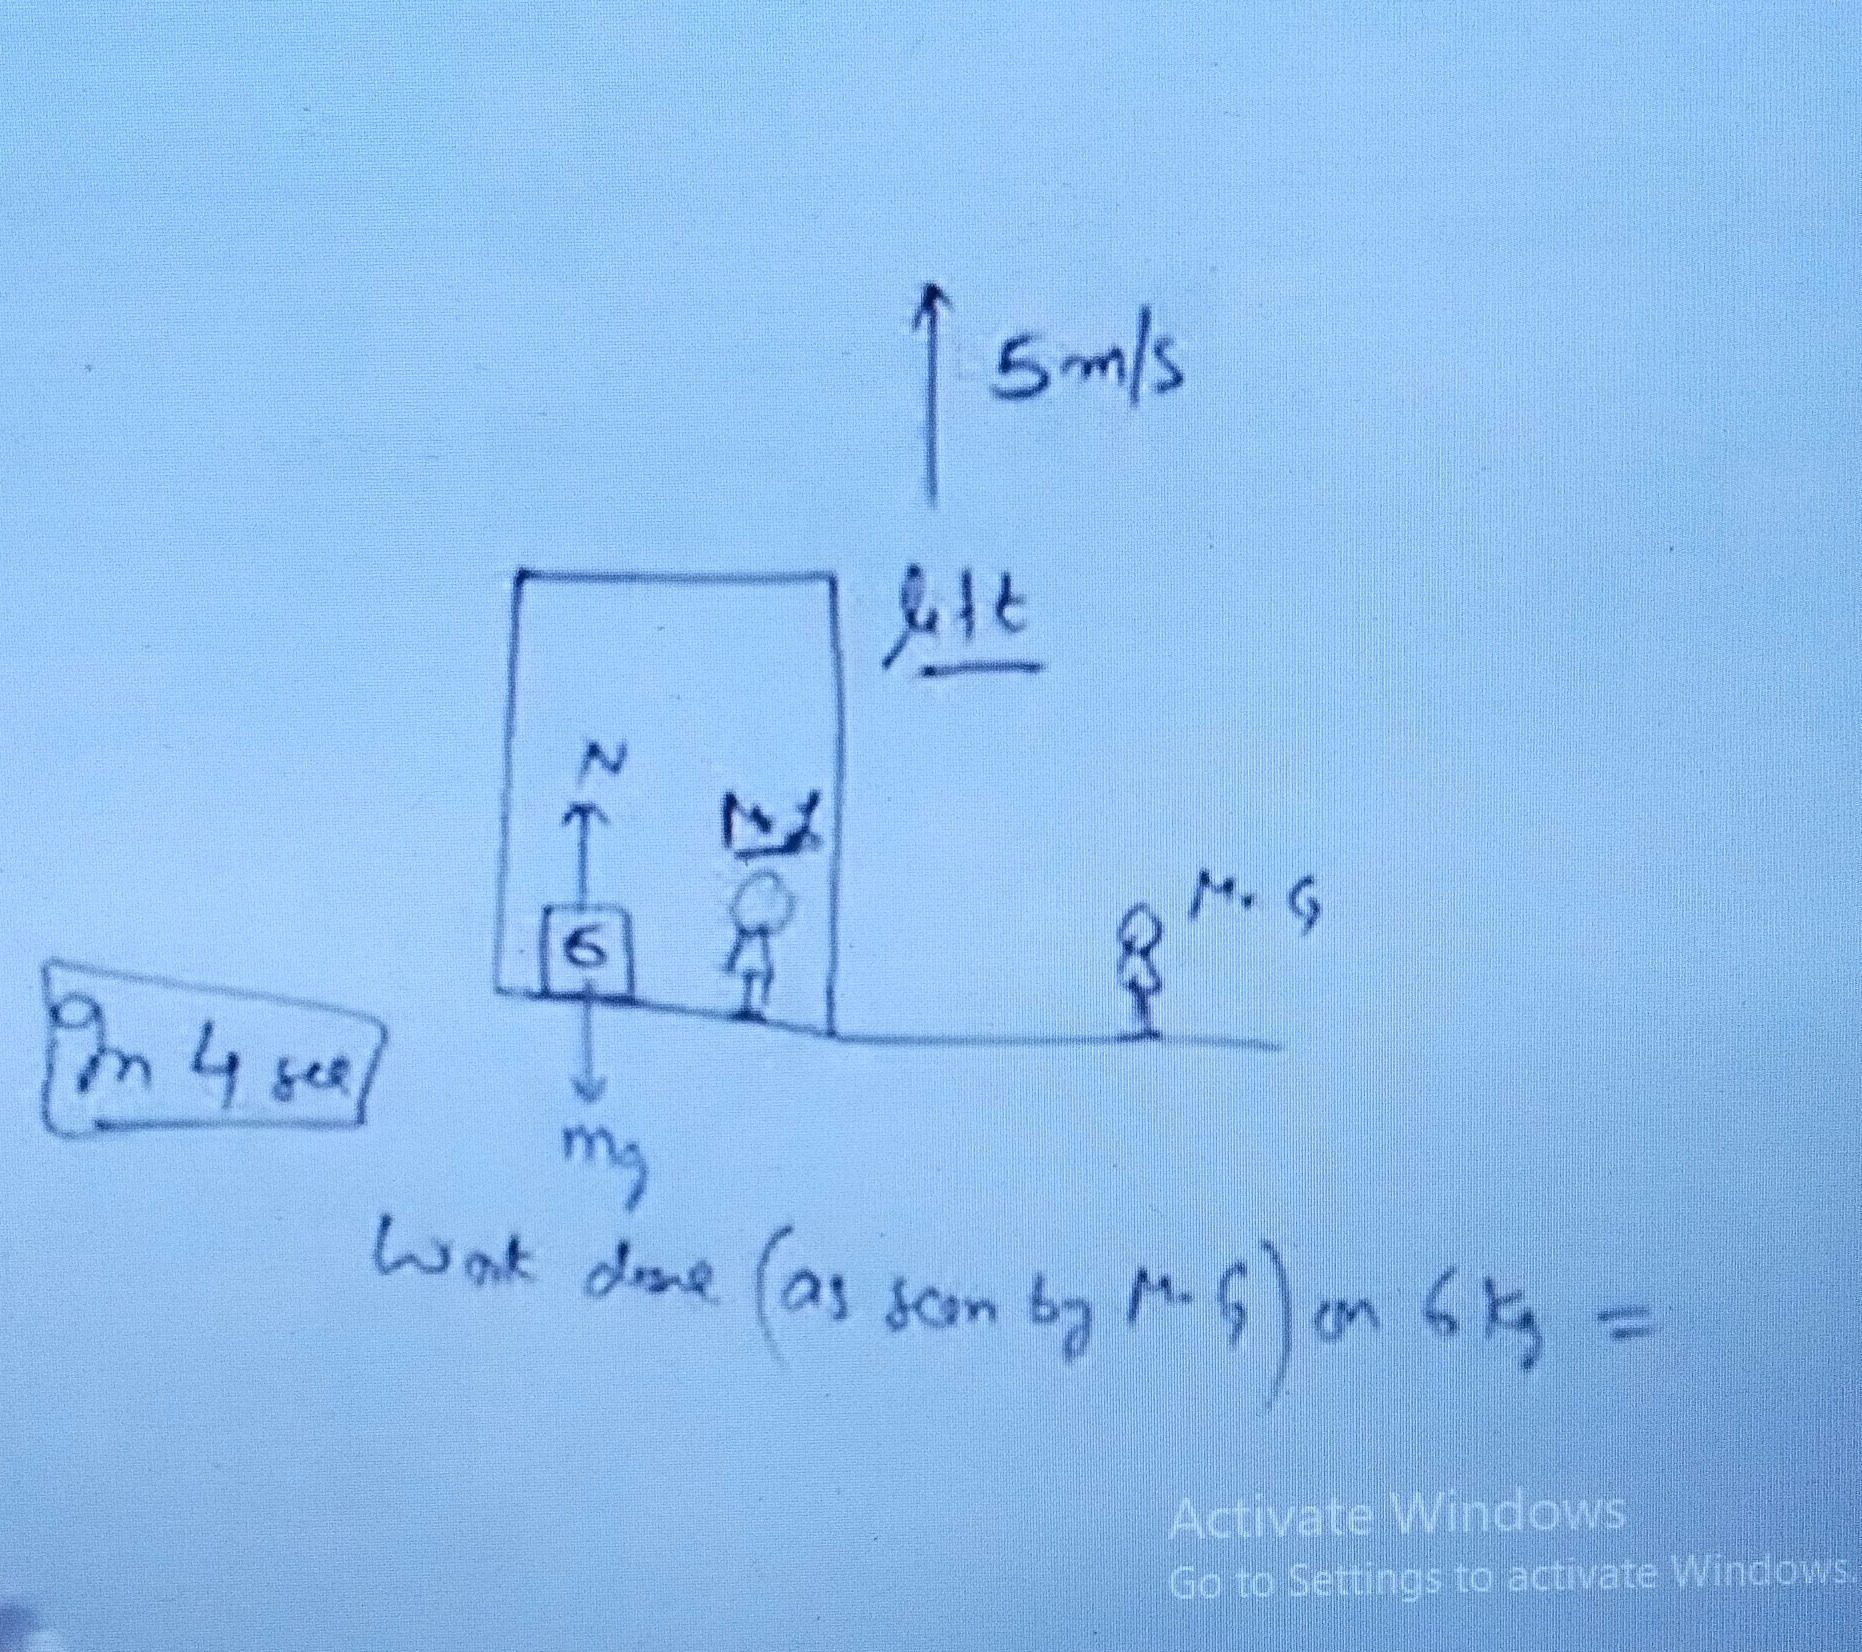 5m/s
lift
N
Mr. G
6
In 4 sec
mg
Work done (as seen by Mr. G) on 6 kg =
Activate Windows
Go to Settings to activate Windows.